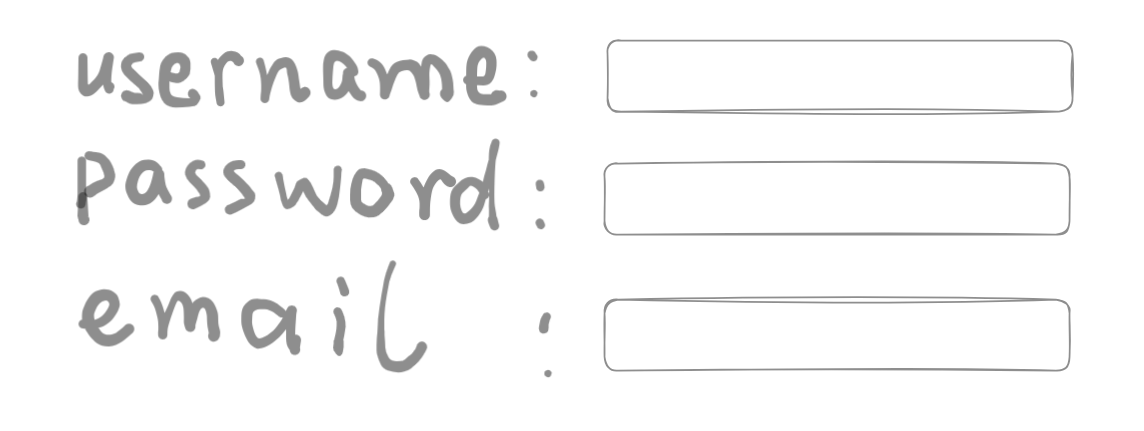 username:
password:
email :